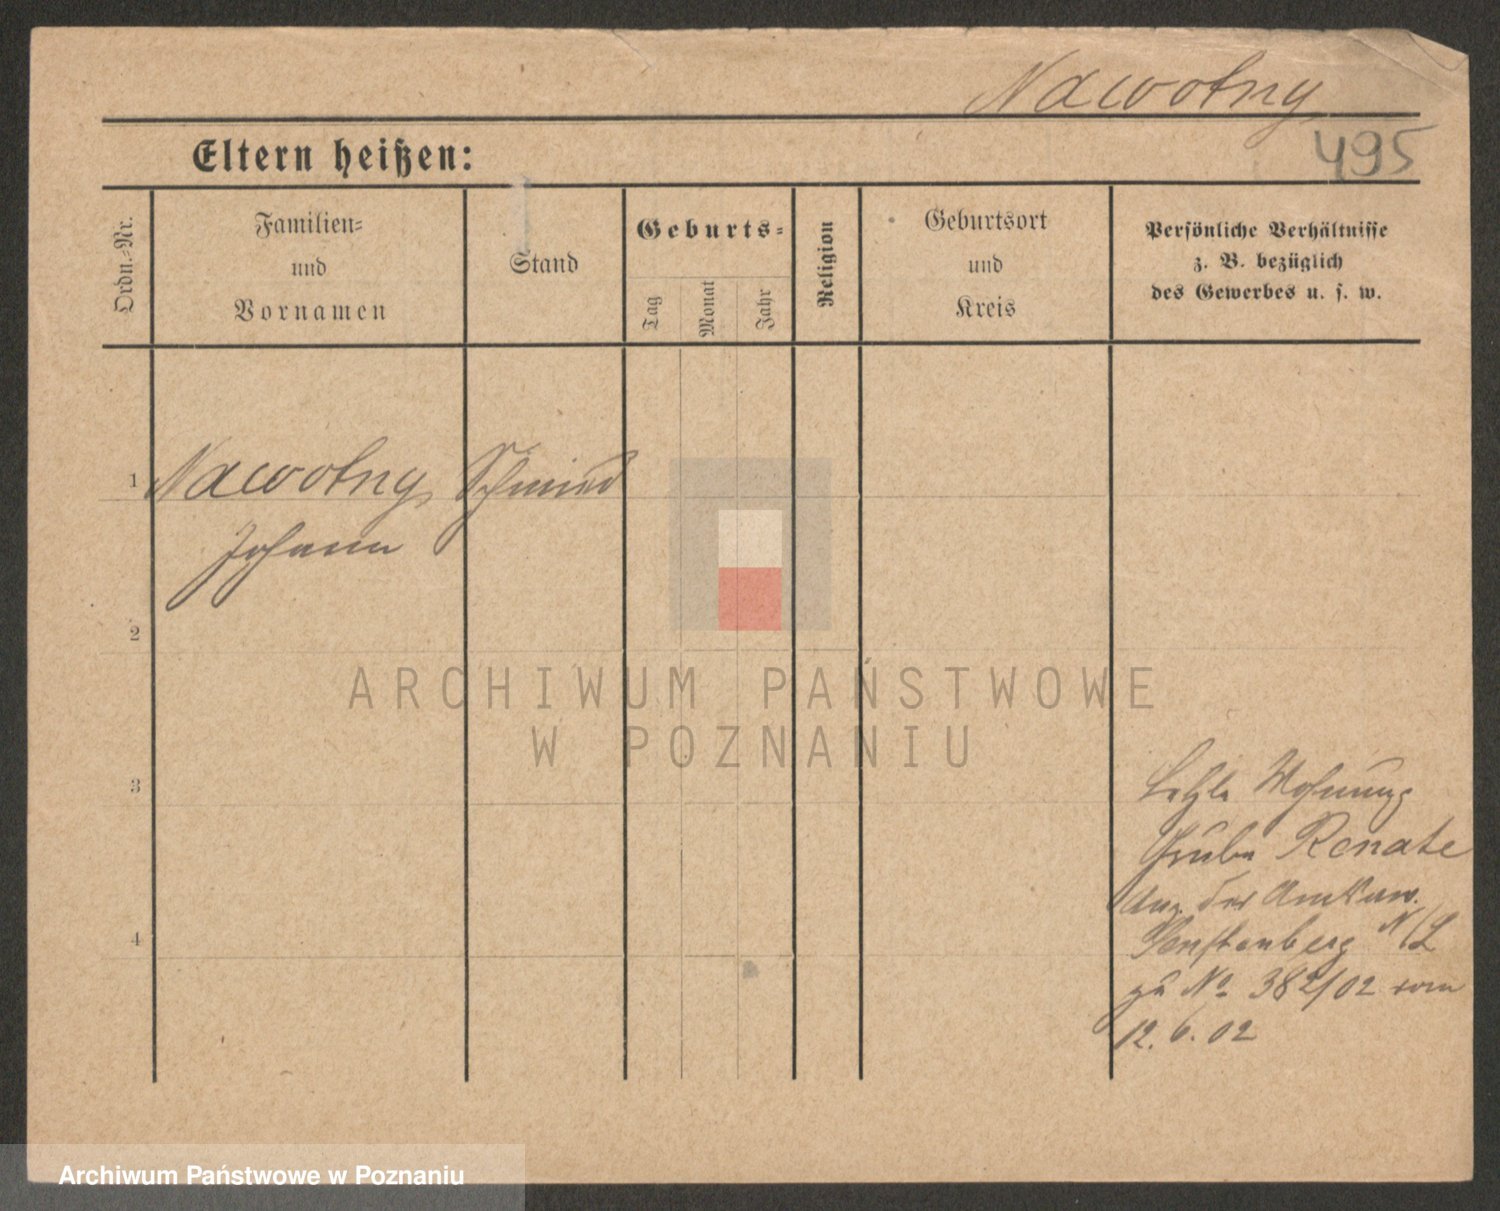 Nawotny
495
Eltern heißen:
Ordn.-Nr.
Familien-
und
Vornamen
Stand
Geburts-
Tag
Monat
Jahr
Religion
Geburtsort
und
Kreis
Persönliche Verhältnisse
z. B. bezüglich
des Gewerbes u. s. w.
1 Nawotny, Schmied
Johann
2
ARCHIWUM PAŃSTWOWE
W POZNANIU
3
Letzte Wohnung
Grube Renate
der
Senftenberg N/L
zu No 382/02 vom
12. 6. 02
4
Archiwum Państwowe w Poznaniu